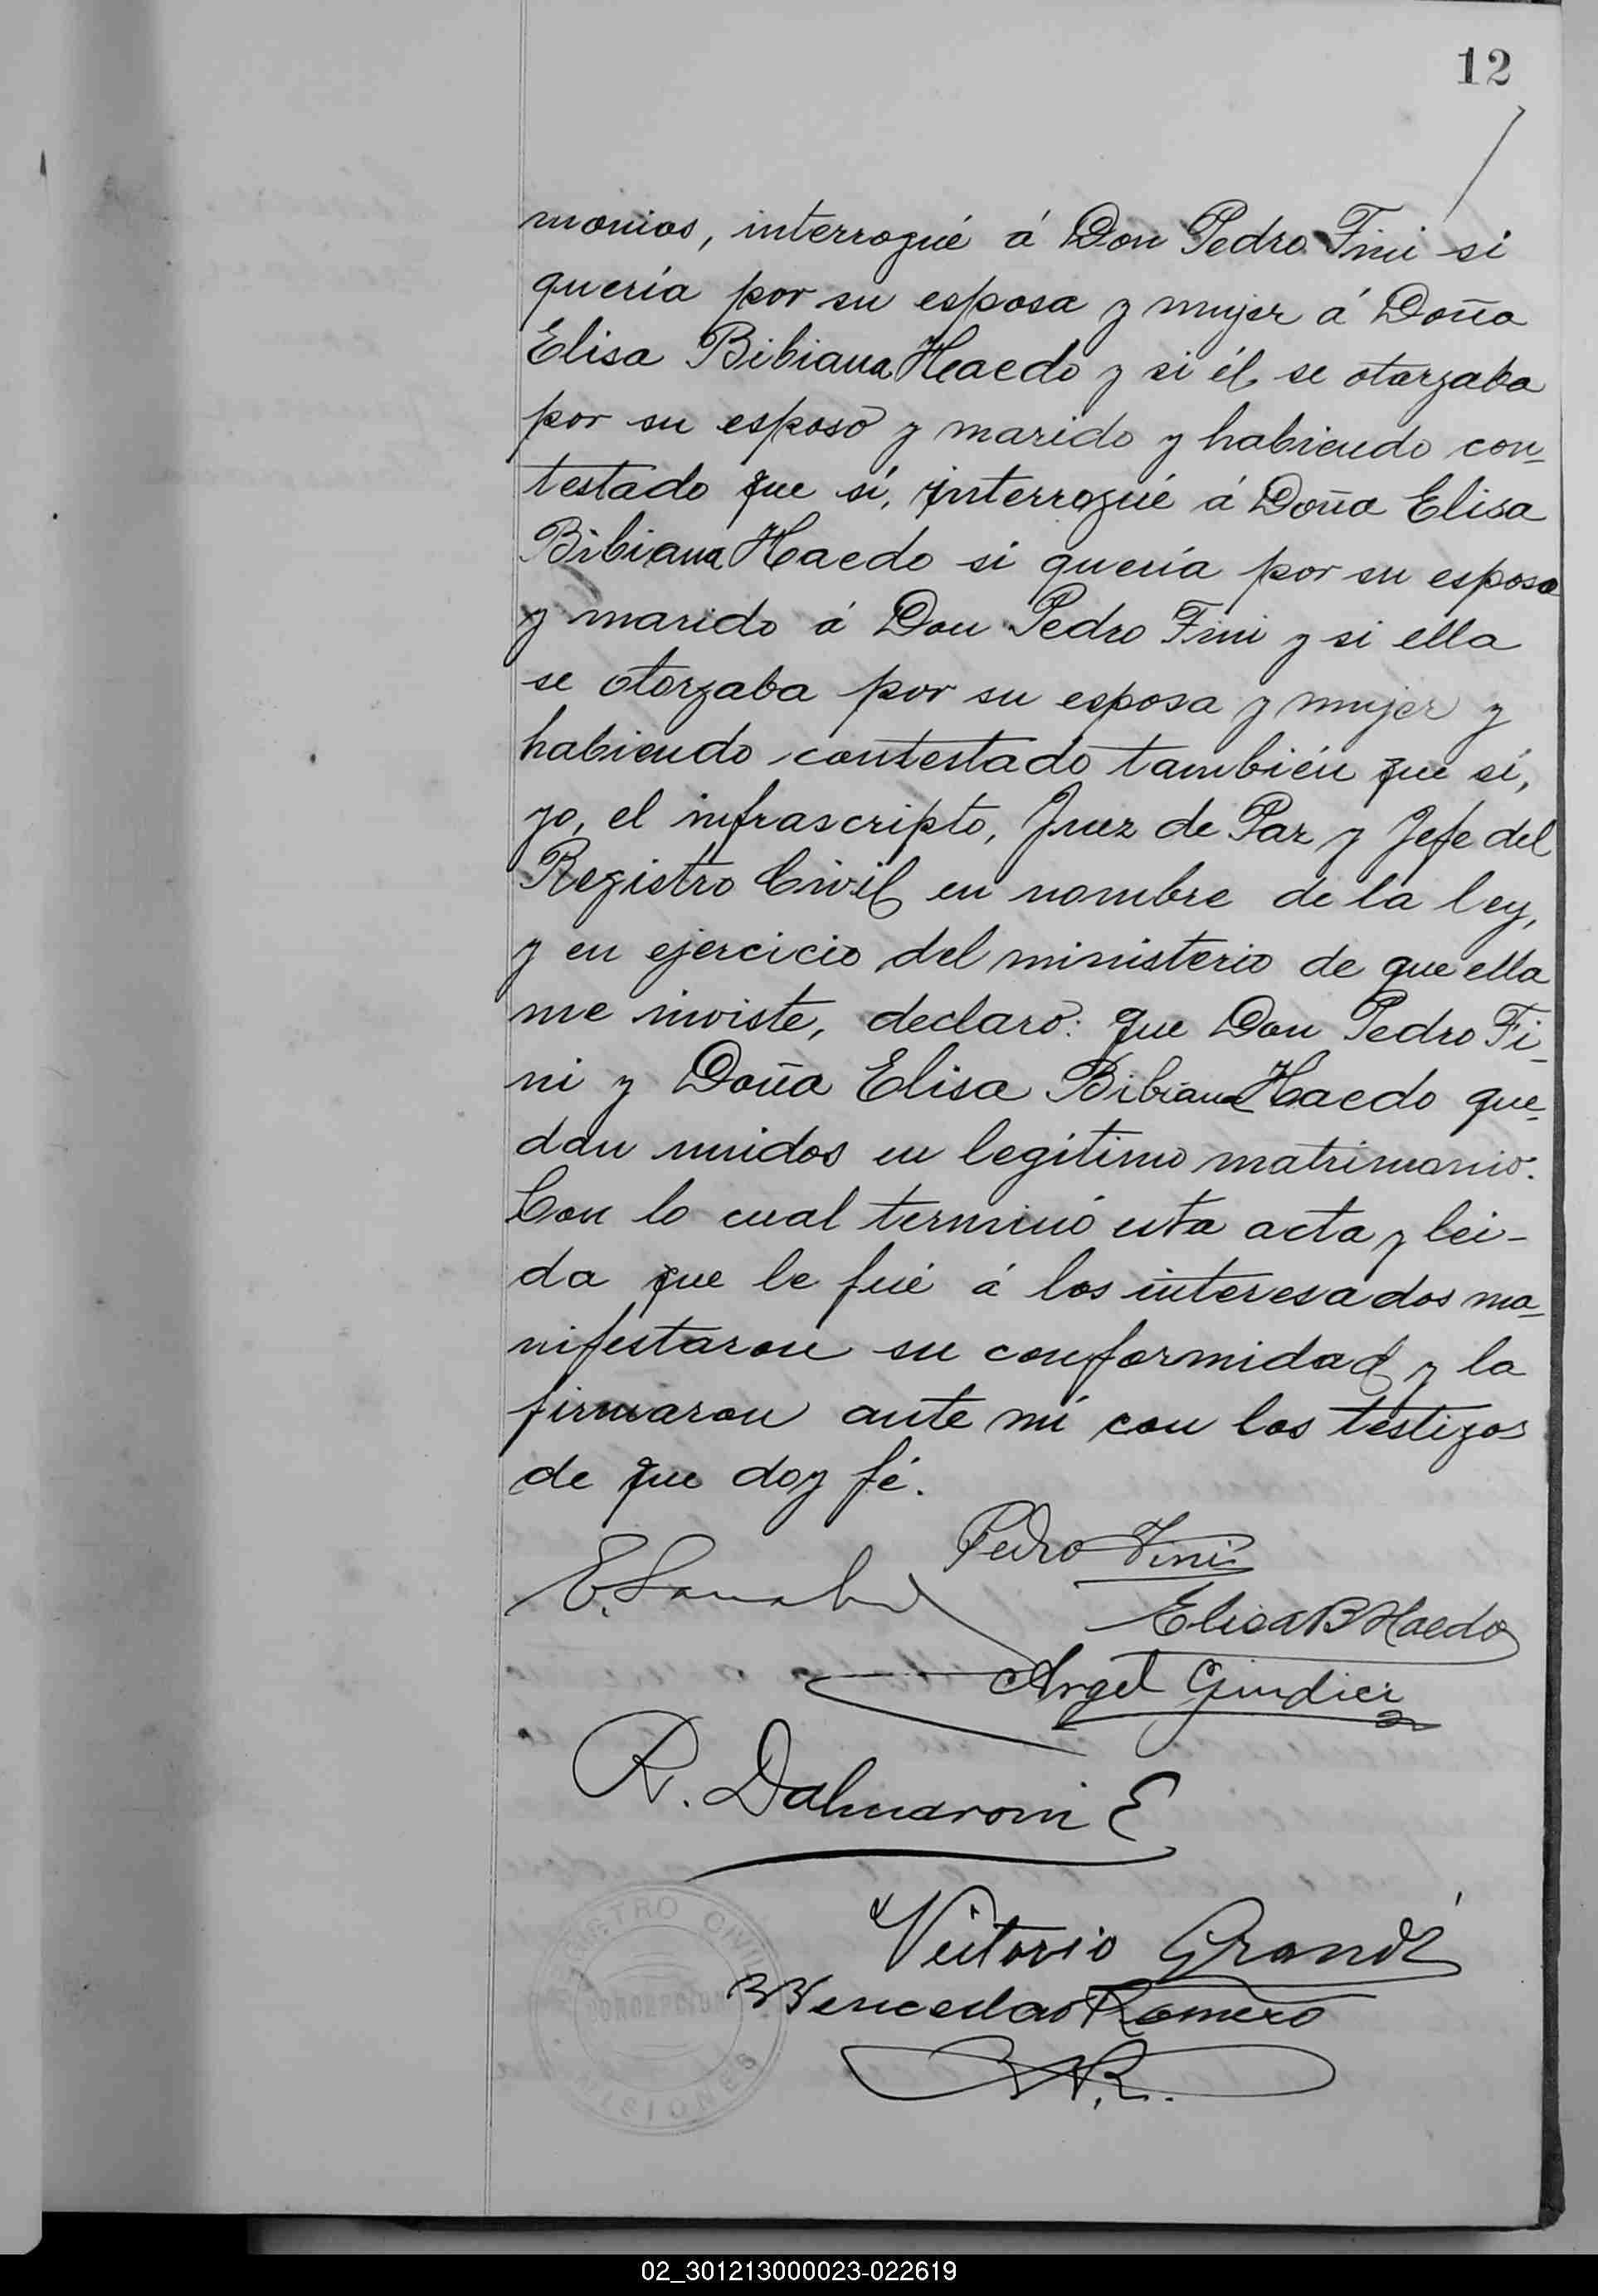 12
monios, interrogué á Don Pedro Fini si
quería por su esposa y mujer á Doña
Elisa Bibiana Haedo y si él se otorgaba
por su esposo y marido y habiendo con=
testado que sí, interrogué á Doña Elisa
Bibiana Haedo si quería por su esposo
y marido á Don Pedro Fini y si ella
se otorgaba por su esposa y mujer y
habiendo contestado también que sí,
yo, el infrascripto, Juez de Paz y Jefe del
Registro Civil en nombre de la ley,
y en ejercicio del ministerio de que ella
me inviste, declaro: que Don Pedro Fi=
ni y Doña Elisa Bibiana Haedo que=
dan unidos en legítimo matrimonio.
Con lo cual terminó esta acta y leí-
da que le fué á los interesados ma=
nifestaron su conformidad y la
firmaron ante mí con los testigos
de que doy fé.
Pedro Fini
E.
Elisa B Haedo
Angel Giudici
R. Dalmaroni E
Vittorio Grandi
Wenceslao Romero
W.R.
REGISTRO CIVIL
CONCEPCION
MISIONES
02_301213000023-022619